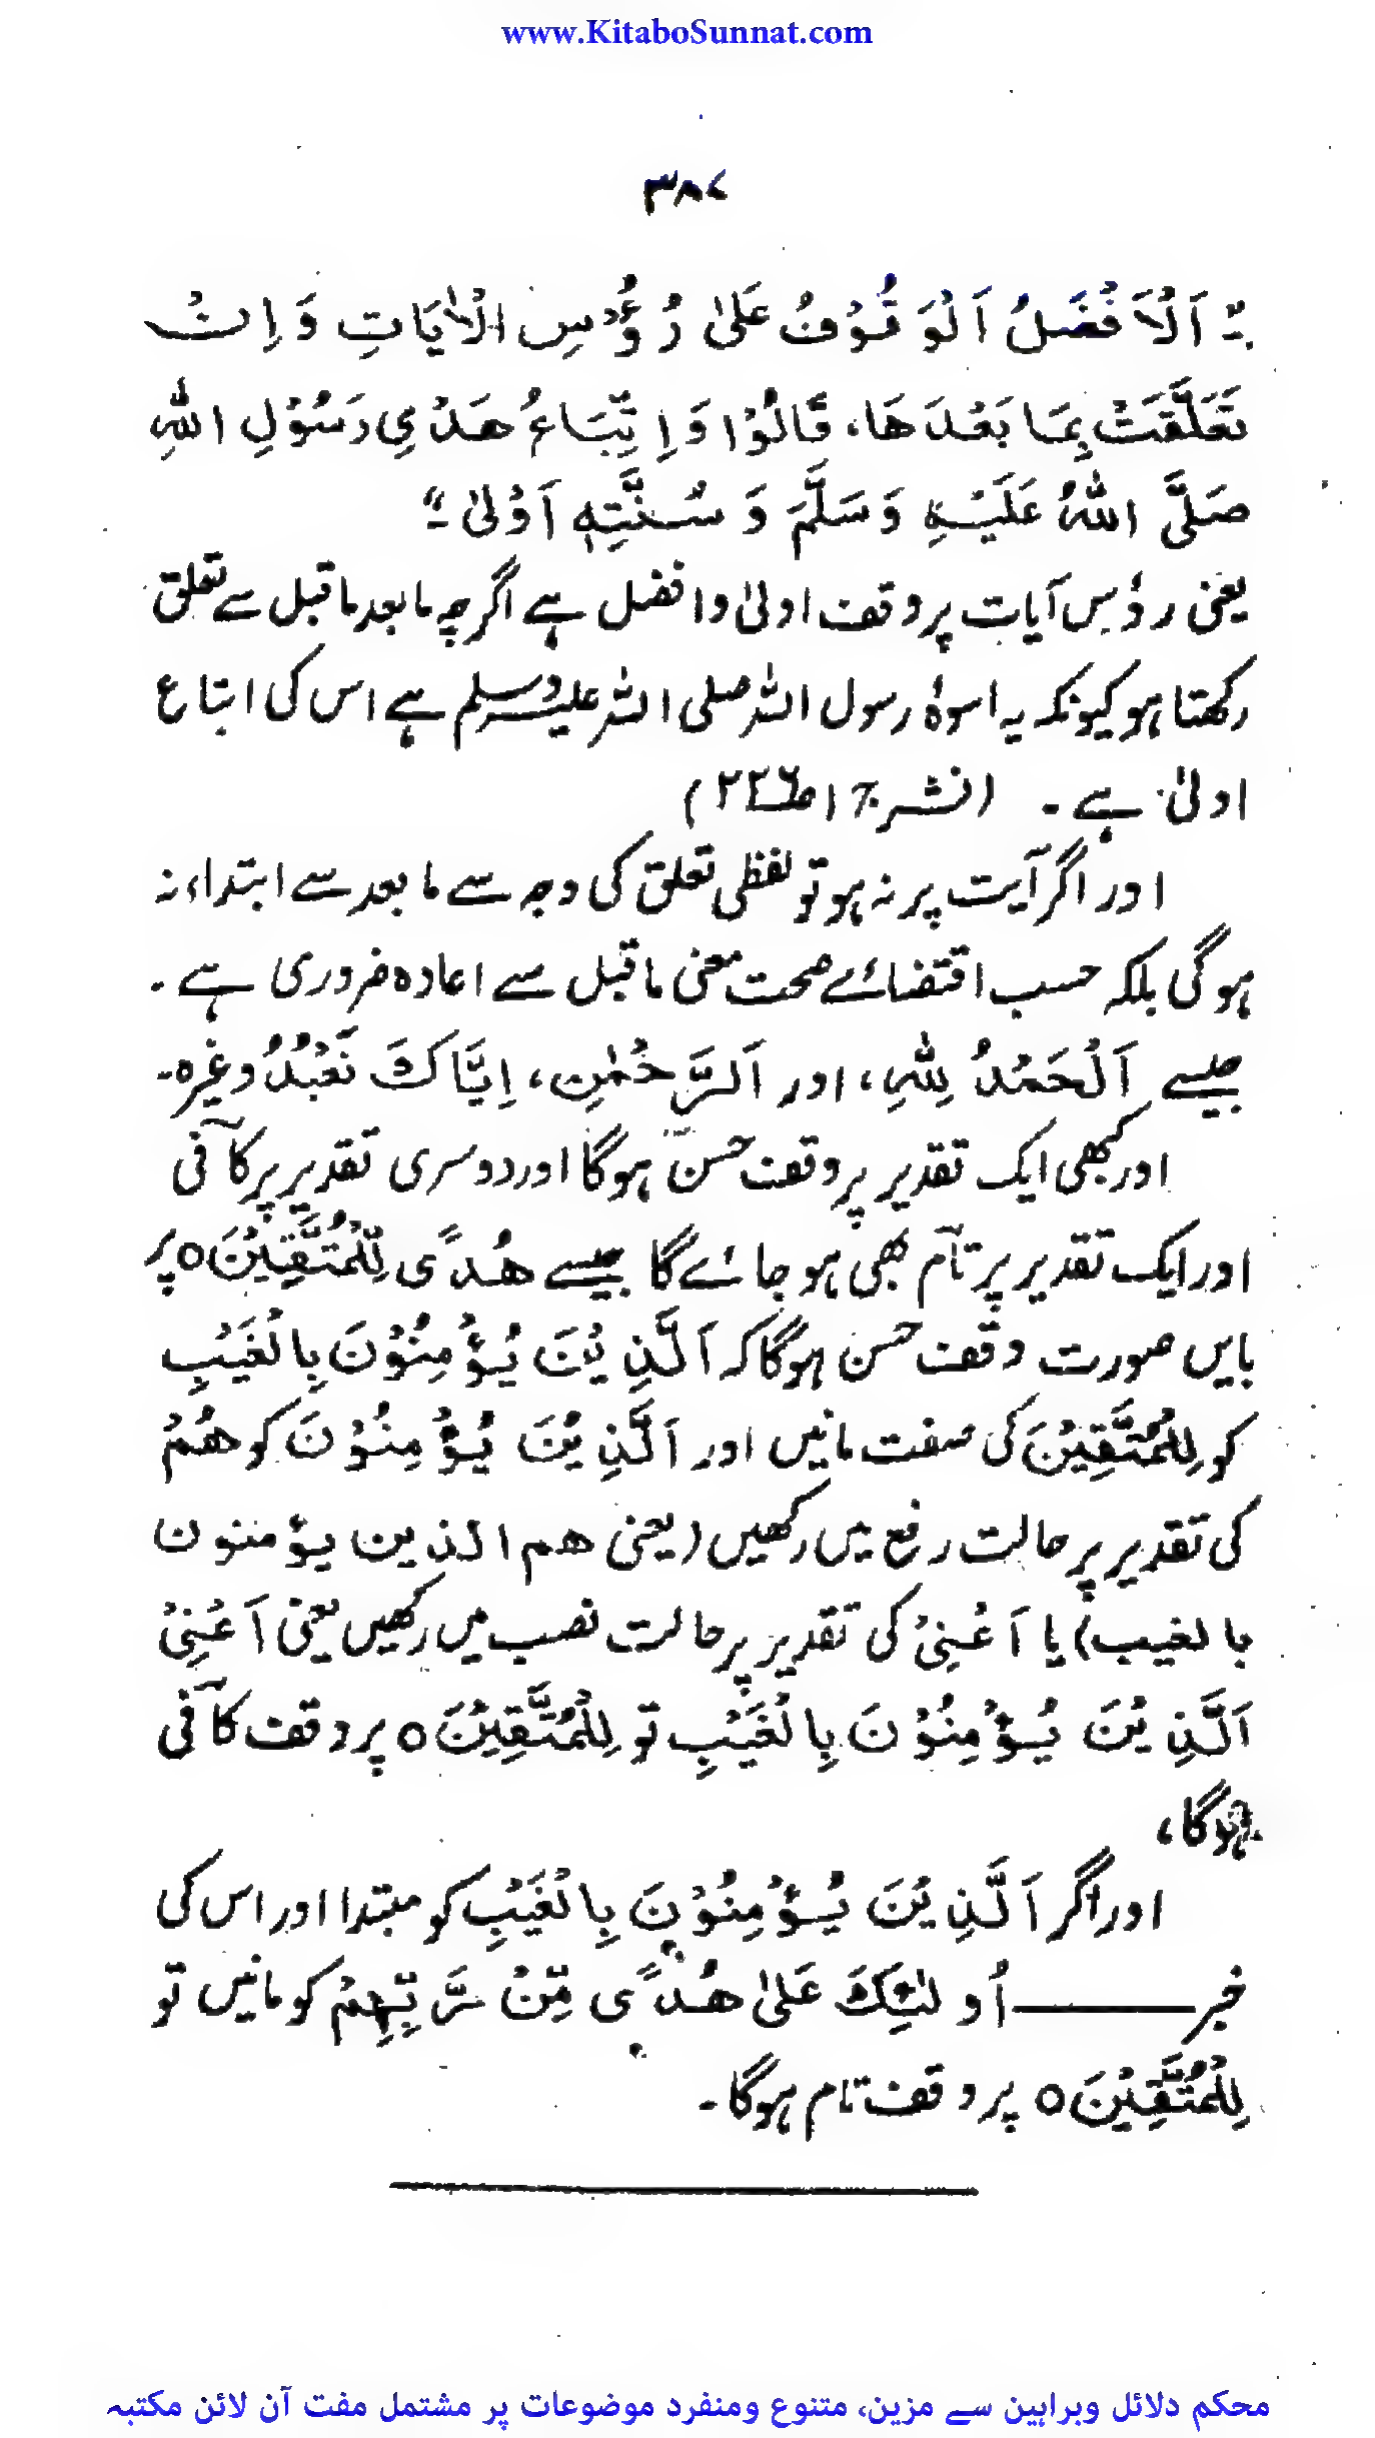 www.KitaboSunnat.com
۳۸۷
"اَلْاَفْضَلُ اَلْوَقُوْفُ عَلیٰ رُؤُسِ الْاٰیَاتِ وَاِنْ
تَعَلَّقَتْ بِمَا بَعْدَهَا، قَالُوْا وَاِتِّبَاءُ هَدْیِ رَسُوْلِ اللّٰهِ
صَلَّی اللّٰهُ عَلَیْهِ وَسَلَّمَ وَ سُنَّتِهٖ اَوْلیٰ ۔"
یعنی رؤس آیات پر وقف اولیٰ وافضل ہے اگرچہ مابعد ماقبل سے تعلق
رکھتا ہو کیونکہ یہ اسوۂ رسول اللہ صلی اللہ علیہ وسلم ہے اس کی اتباع
اولیٰ ہے ۔ (نشر ج ۱ ص ۲۲۶)
اور اگر آیت پر نہ ہو تو لفظی تعلق کی وجہ سے مابعد سے ابتداء نہ
ہوگی بلکہ حسب اقتضائے صحت معنی ماقبل سے اعادہ ضروری ہے ۔
جیسے اَلْحَمْدُ لِلّٰهِ، اور اَلرَّحْمٰنِ، اِیَّاكَ نَعْبُدُ وغیرہ۔
اور کبھی ایک تقدیر پر وقف حسن ہوگا اور دوسری تقدیر پر کآفی
اور ایک تقدیر پر تآم بھی ہو جائے گا جیسے هُدًی لِّلْمُتَّقِیْنَ ٥ پر
بایں صورت وقف حسن ہوگا کہ اَلَّذِیْنَ یُؤْمِنُوْنَ بِالْغَیْبِ
کو لِلْمُتَّقِیْنَ کی صفت مانیں اور اَلَّذِیْنَ یُؤْمِنُوْنَ کو هُمْ
کی تقدیر پر حالت رفع میں رکھیں (یعنی هم الذین یؤمنون
بالغیب) یا اَعْنِیْ کی تقدیر پر حالت نصب میں رکھیں یعنی اَعْنِیْ
اَلَّذِیْنَ یُؤْمِنُوْنَ بِالْغَیْبِ تو لِلْمُتَّقِیْنَ ٥ پر وقف کآفی
ہوگا،
اور اگر اَلَّذِیْنَ یُؤْمِنُوْنَ بِالْغَیْبِ کو مبتدا اور اس کی
خبر ـــــــ اُولٰئِكَ عَلیٰ هُدًی مِّنْ رَّبِّهِمْ کو مانیں تو
لِلْمُتَّقِیْنَ ٥ پر وقف تام ہوگا ۔
محکم دلائل وبراہین سے مزین، متنوع ومنفرد موضوعات پر مشتمل مفت آن لائن مکتبہ